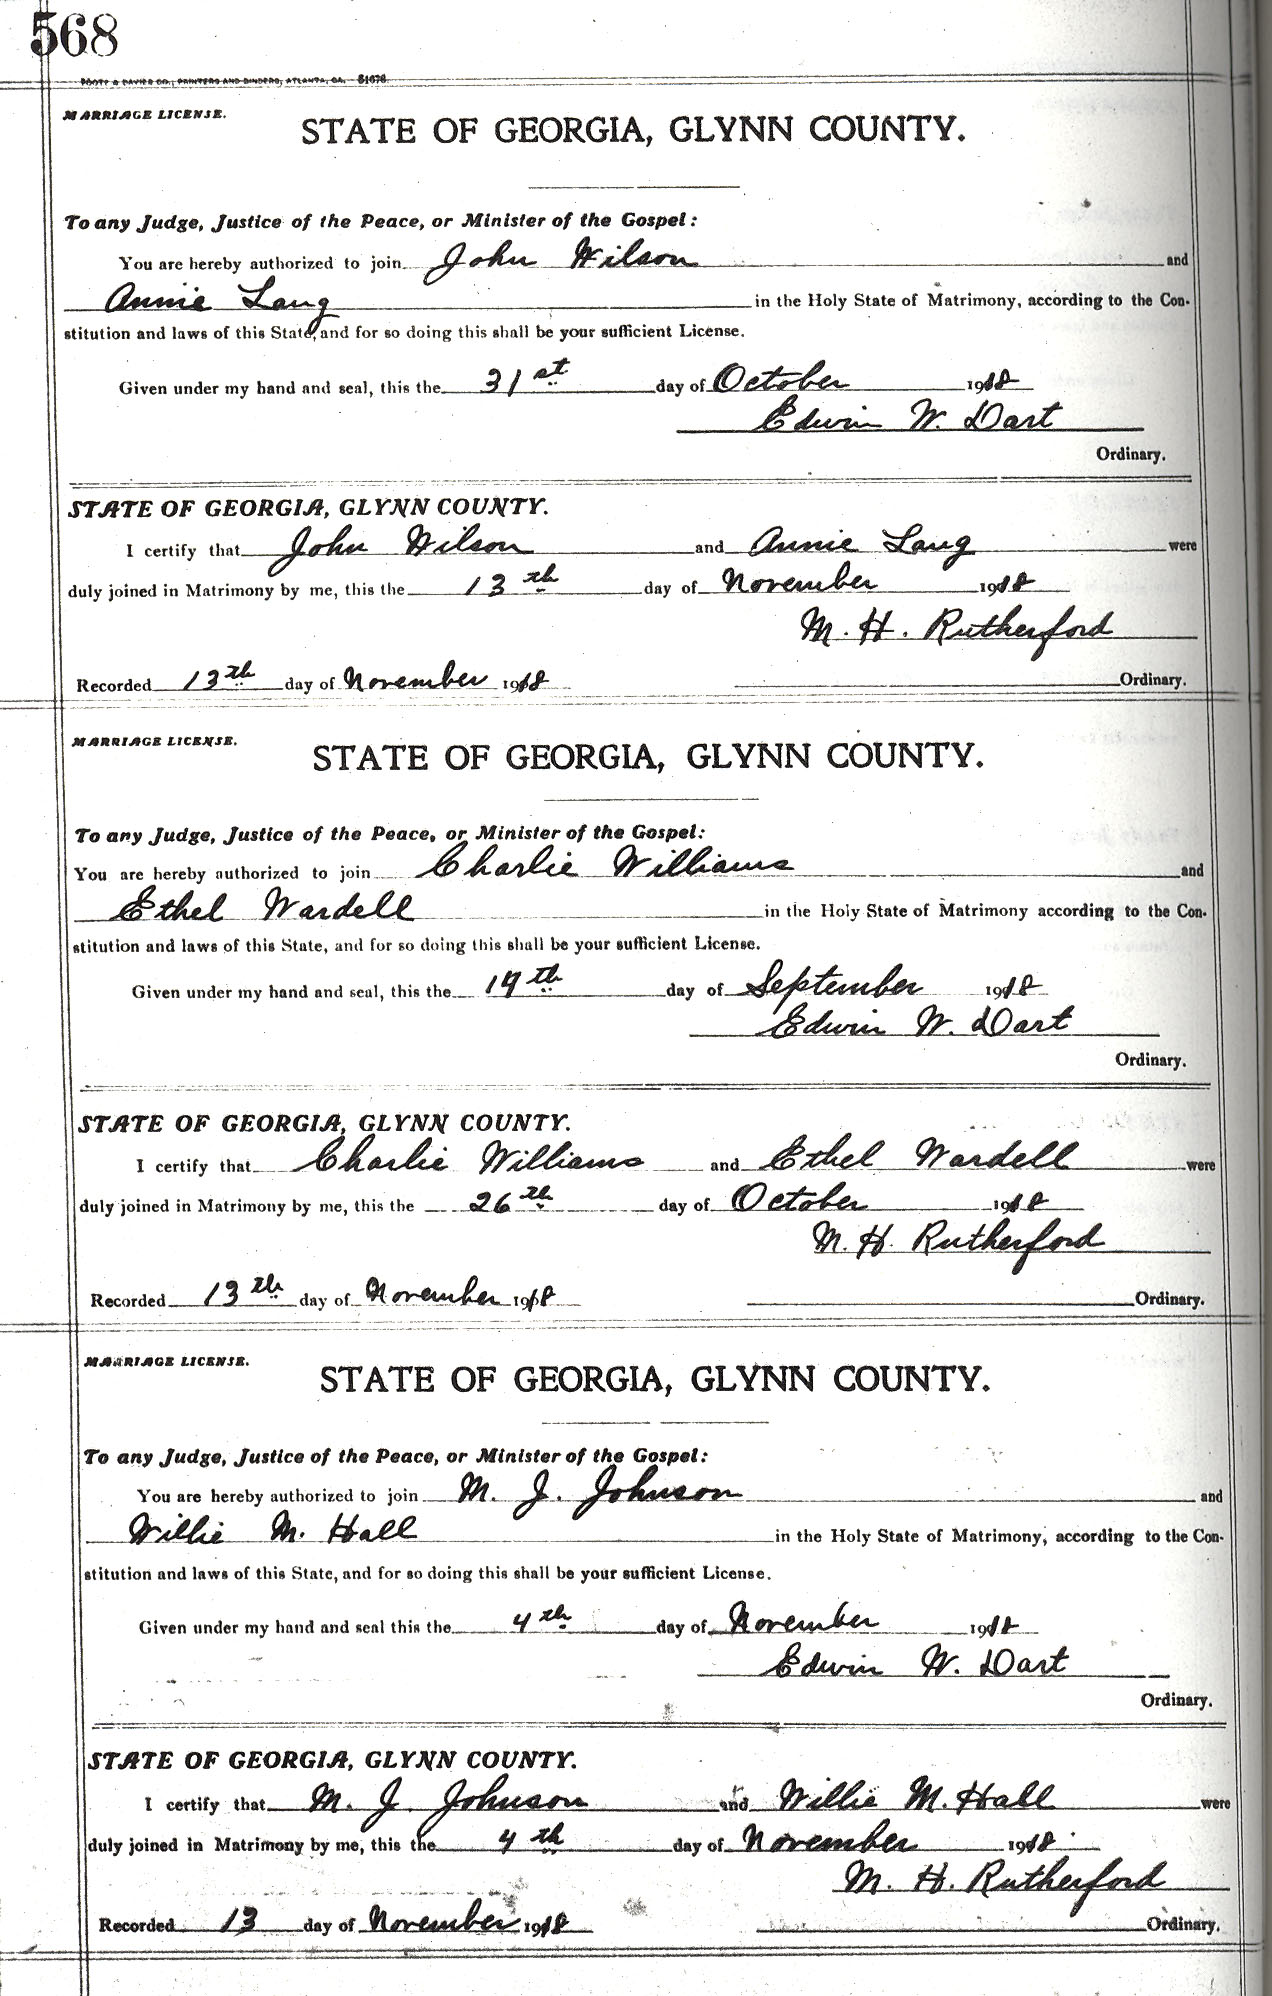 568
FOOTE & DAVIES CO., PRINTERS AND BINDERS, ATLANTA, GA. 51676
MARRIAGE LICENSE.
STATE OF GEORGIA, GLYNN COUNTY.
To any Judge, Justice of the Peace, or Minister of the Gospel:
You are hereby authorized to join John Wilson and
Annie Lang in the Holy State of Matrimony, according to the Con-
stitution and laws of this State, and for so doing this shall be your sufficient License.
Given under my hand and seal, this the 31st day of October 1918
Edwin W. Dart
Ordinary.
STATE OF GEORGIA, GLYNN COUNTY.
I certify that John Wilson and Annie Lang were
duly joined in Matrimony by me, this the 13th day of November 1918
M. H. Rutherford
Recorded 13th day of November 1918 Ordinary.
MARRIAGE LICENSE.
STATE OF GEORGIA, GLYNN COUNTY.
To any Judge, Justice of the Peace, or Minister of the Gospel:
You are hereby authorized to join Charlie Williams and
Ethel Wardell in the Holy State of Matrimony according to the Con-
stitution and laws of this State, and for so doing this shall be your sufficient License.
Given under my hand and seal, this the 19th day of September 1918
Edwin W. Dart
Ordinary.
STATE OF GEORGIA, GLYNN COUNTY.
I certify that Charlie Williams and Ethel Wardell were
duly joined in Matrimony by me, this the 26th day of October 1918
M. H. Rutherford
Recorded 13th day of November 1918 Ordinary.
MARRIAGE LICENSE.
STATE OF GEORGIA, GLYNN COUNTY.
To any Judge, Justice of the Peace, or Minister of the Gospel:
You are hereby authorized to join M. J. Johnson and
Willie M. Hall in the Holy State of Matrimony, according to the Con-
stitution and laws of this State, and for so doing this shall be your sufficient License.
Given under my hand and seal this the 4th day of November 1918
Edwin W. Dart
Ordinary.
STATE OF GEORGIA, GLYNN COUNTY.
I certify that M. J. Johnson and Willie M. Hall were
duly joined in Matrimony by me, this the 4th day of November 1918
M. H. Rutherford
Recorded 13 day of November 1918 Ordinary.